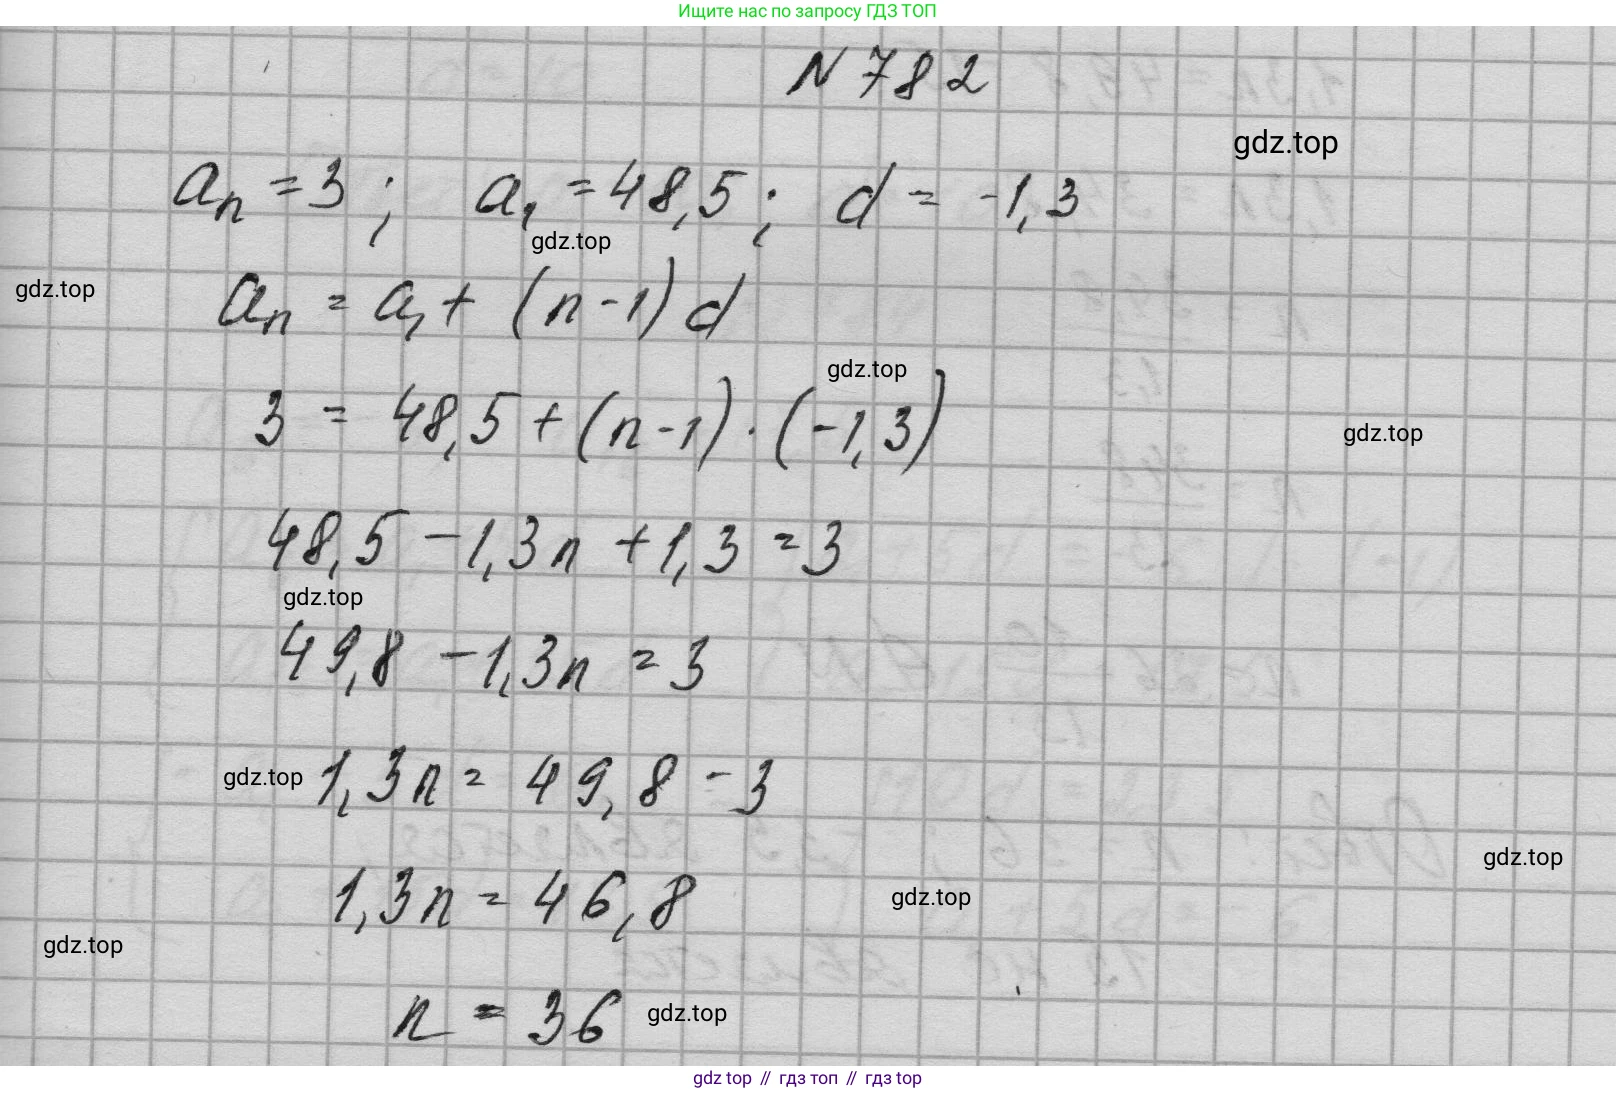 Ищите нас по запросу ГДЗ ТОП
N 782
gdz.top
aₙ = 3 ; a₁ = 48,5 ; d = -1,3
gdz.top
gdz.top
aₙ = a₁ + (n - 1) d
gdz.top
3 = 48,5 + (n - 1) · (-1,3)
gdz.top
48,5 - 1,3n + 1,3 = 3
gdz.top
49,8 - 1,3n = 3
gdz.top
1,3n = 49,8 - 3
gdz.top
1,3n = 46,8
gdz.top
gdz.top
n = 36
gdz.top
gdz top // гдз топ // гдз top